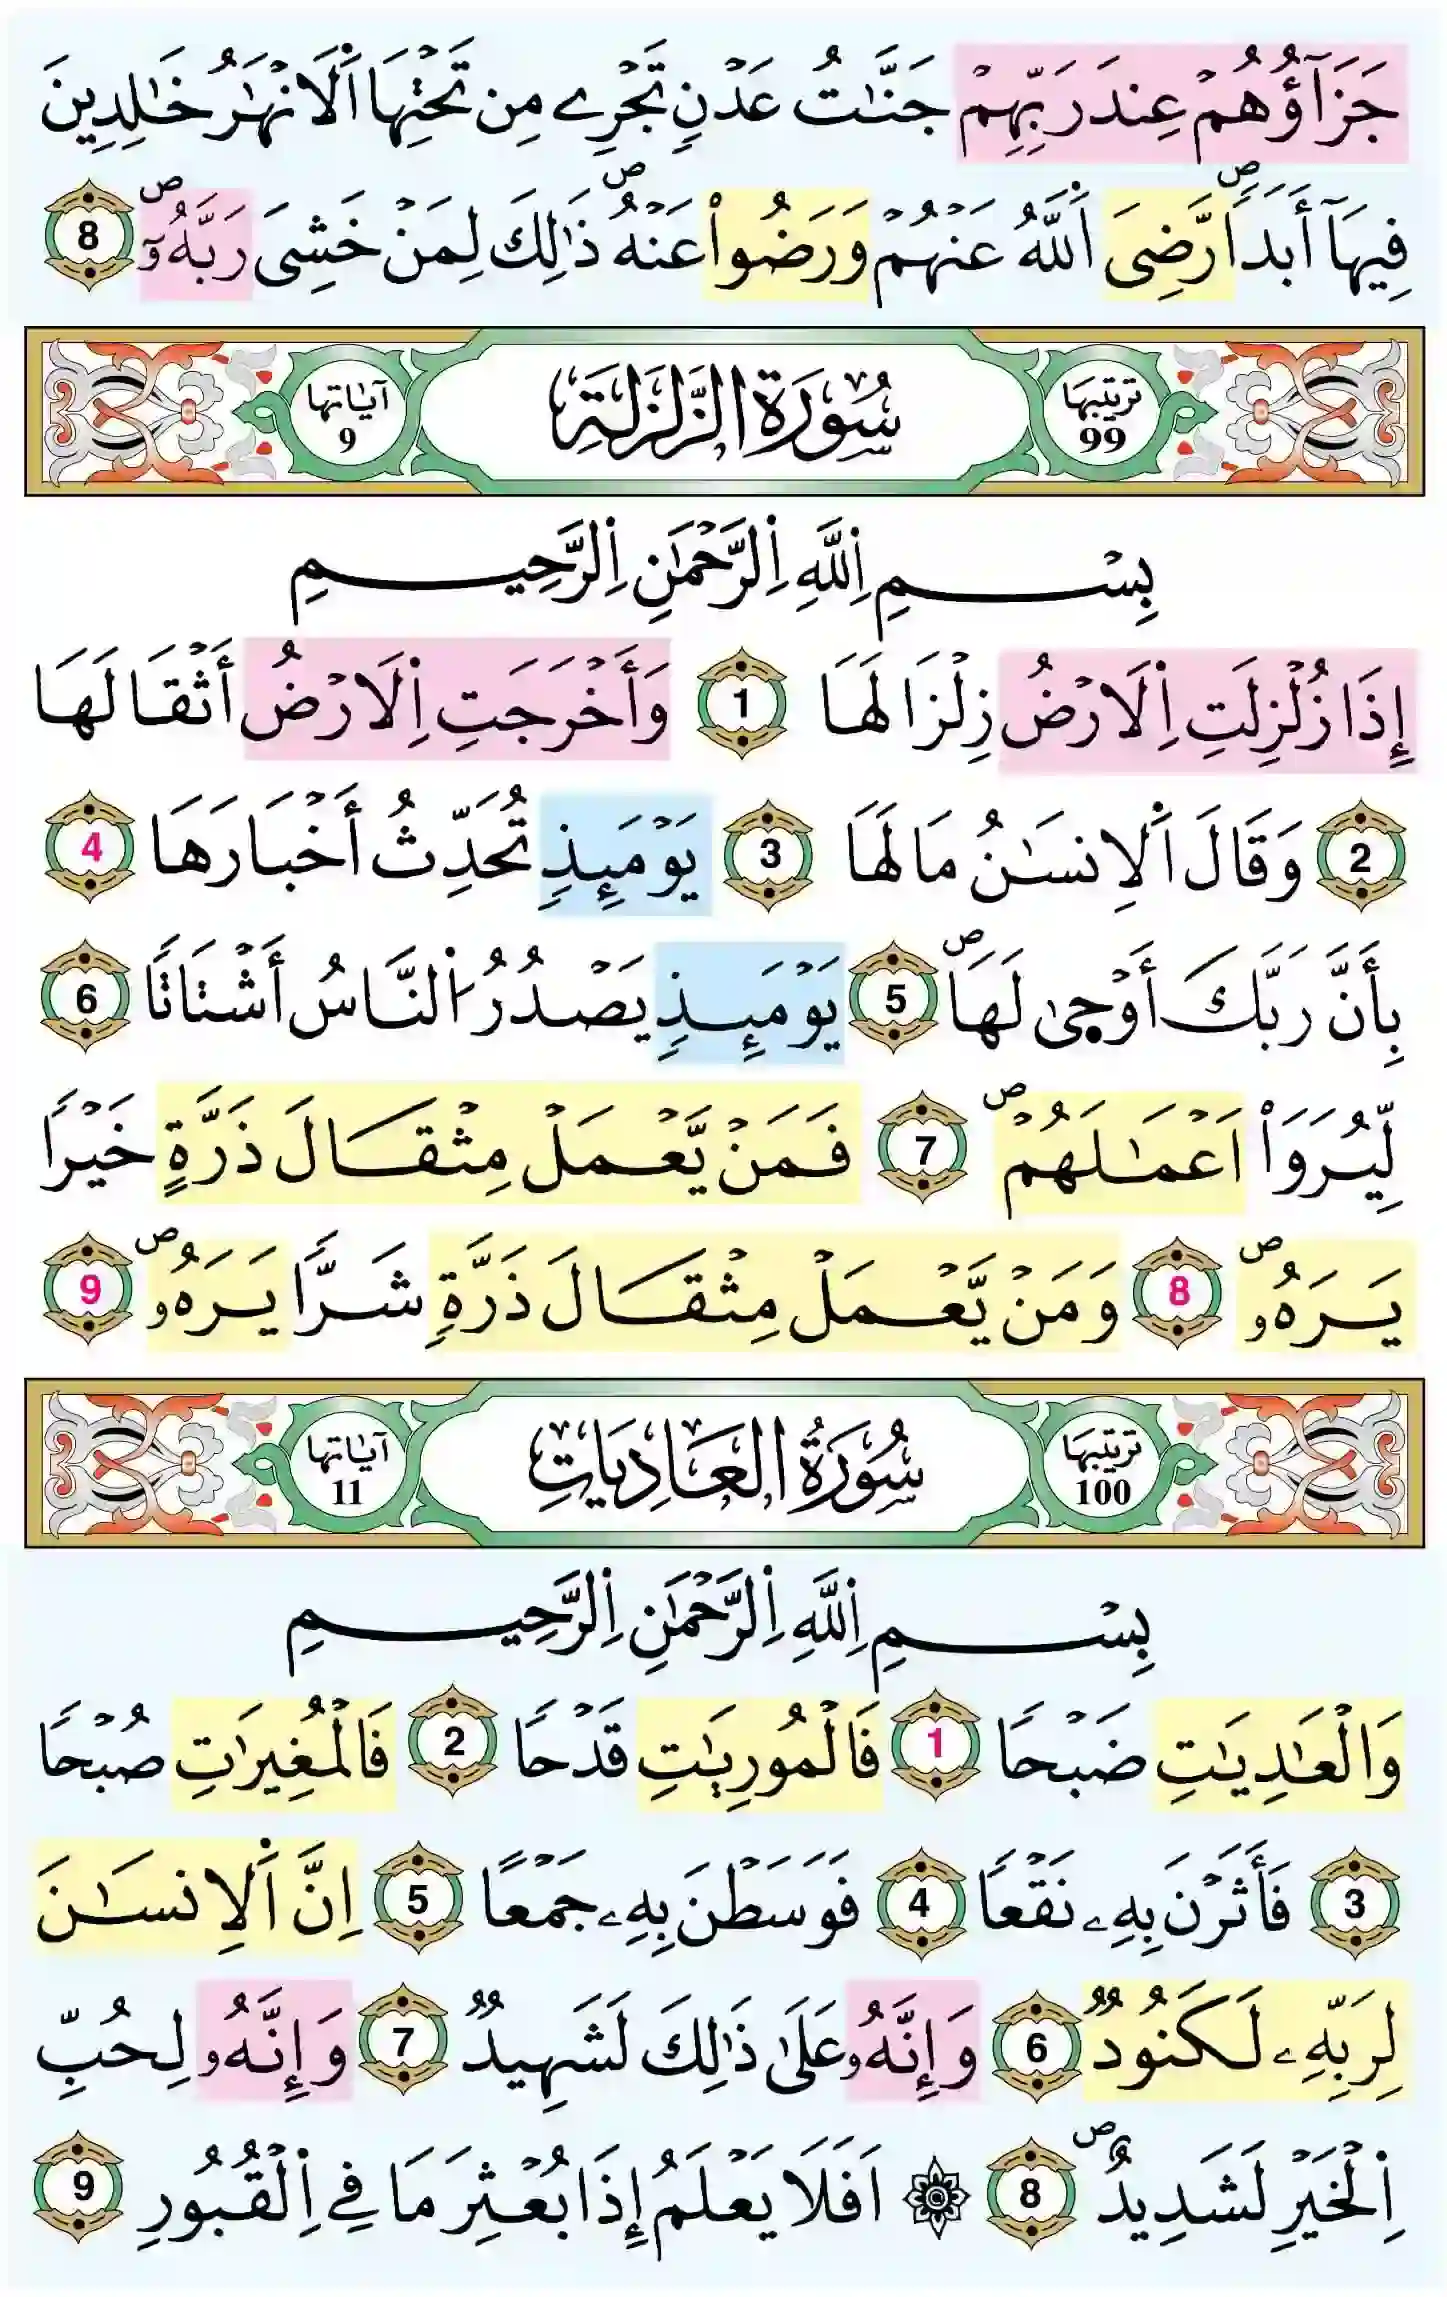 جَزَآؤُهُمْ عِندَ رَبِّهِمْ جَنَّٰتُ عَدْنٍ تَجْرِے مِن تَحْتِهَا اَ۬لَانْهَٰرُ خَٰلِدِينَ
فِيهَآ أَبَداٗۖ رَّضِيَ اَ۬للَّهُ عَنْهُمْ وَرَضُواْ عَنْهُۖ ذَٰلِكَ لِمَنْ خَشِيَ رَبَّهُۥٓۖ 8
ترتيبها 99 سُورَةُ الزَّلْزَلَةِ آيَاتها 9
بِسْمِ اِ۬للَّهِ اِ۬لرَّحْمَٰنِ اِ۬لرَّحِيمِ
إِذَا زُلْزِلَتِ اِ۬لَارْضُ زِلْزَالَهَا 1 وَأَخْرَجَتِ اِ۬لَارْضُ أَثْقَالَهَا
2 وَقَالَ اَ۬لِانسَٰنُ مَا لَهَا 3 يَوْمَئِذٍ تُحَدِّثُ أَخْبَارَهَا 4
بِأَنَّ رَبَّكَ أَوْحَىٰ لَهَاۖ 5 يَوْمَئِذٍ يَصْدُرُ اُ۬لنَّاسُ أَشْتَاتاٗ 6
لِّيُرَوَاْ اَعْمَٰلَهُمْۖ 7 فَمَنْ يَّعْمَلْ مِثْقَالَ ذَرَّةٍ خَيْراٗ
يَرَهُۥۖ 8 وَمَنْ يَّعْمَلْ مِثْقَالَ ذَرَّةٖ شَرّاٗ يَرَهُۥۖ 9
ترتيبها 100 سُورَةُ الْعَادِيَاتِ آيَاتها 11
بِسْمِ اِ۬للَّهِ اِ۬لرَّحْمَٰنِ اِ۬لرَّحِيمِ
وَالْعَٰدِيَٰتِ ضَبْحاٗ 1 فَالْمُورِيَٰتِ قَدْحاٗ 2 فَالْمُغِيرَٰتِ صُبْحاٗ
3 فَأَثَرْنَ بِهِۦ نَقْعاٗ 4 فَوَسَطْنَ بِهِۦ جَمْعاً 5 اِنَّ اَ۬لِانسَٰنَ
لِرَبِّهِۦ لَكَنُودٞ 6 وَإِنَّهُۥ عَلَىٰ ذَٰلِكَ لَشَهِيدٞ 7 وَإِنَّهُۥ لِحُبِّ
اِ۬لْخَيْرِ لَشَدِيدٌۖ 8 ۞ اَفَلَا يَعْلَمُ إِذَا بُعْثِرَ مَا فِے اِ۬لْقُبُورِ 9